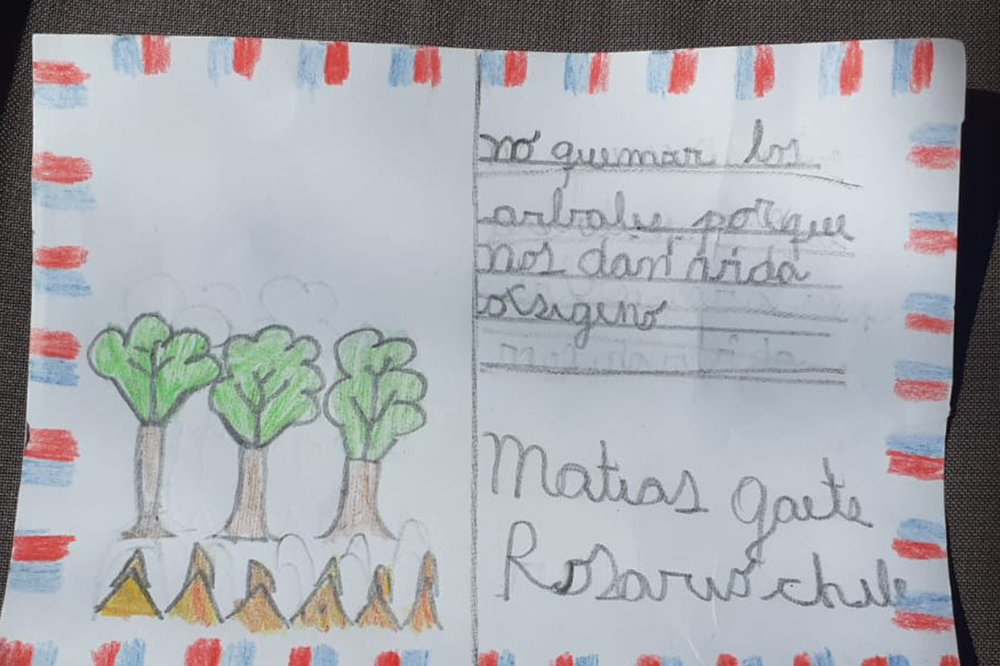 no quemar los
arboles porque
nos dan vida
oxsigeno
Matias Gaete
Rosario chile